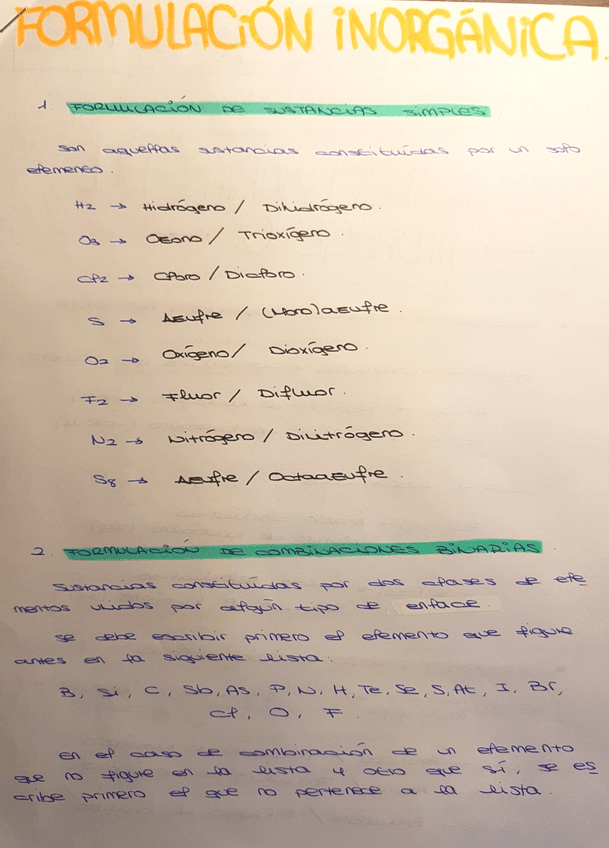 FORMULACIÓN INORGÁNICA.
1 FORMULACIÓN DE SUSTANCIAS SIMPLES
Son aquellas sustancias constituídas por un solo
elemento.
H2 → Hidrógeno / Dihidrógeno.
O3 → Ozono / Trioxígeno.
Cl2 → Cloro / Dicloro.
S → Azufre / (Mono)azufre.
O2 → Oxígeno / Dioxígeno.
F2 → Fluor / Difluor.
N2 → Nitrógeno / Dinitrógeno.
S8 → Azufre / Octaazufre.
2 FORMULACIÓN DE COMBINACIONES BINARIAS
Sustancias constituídas por dos clases de ele
mentos unidos por algún tipo de enlace.
Se debe escribir primero el elemento que figure
antes en la siguiente lista:
B, Si, C, Sb, As, P, N, H, Te, Se, S, At, I, Br,
Cl, O, F.
En el caso de combinación de un elemento
que no figure en la lista y otro que sí, se es
cribe primero el que no pertenece a la lista.